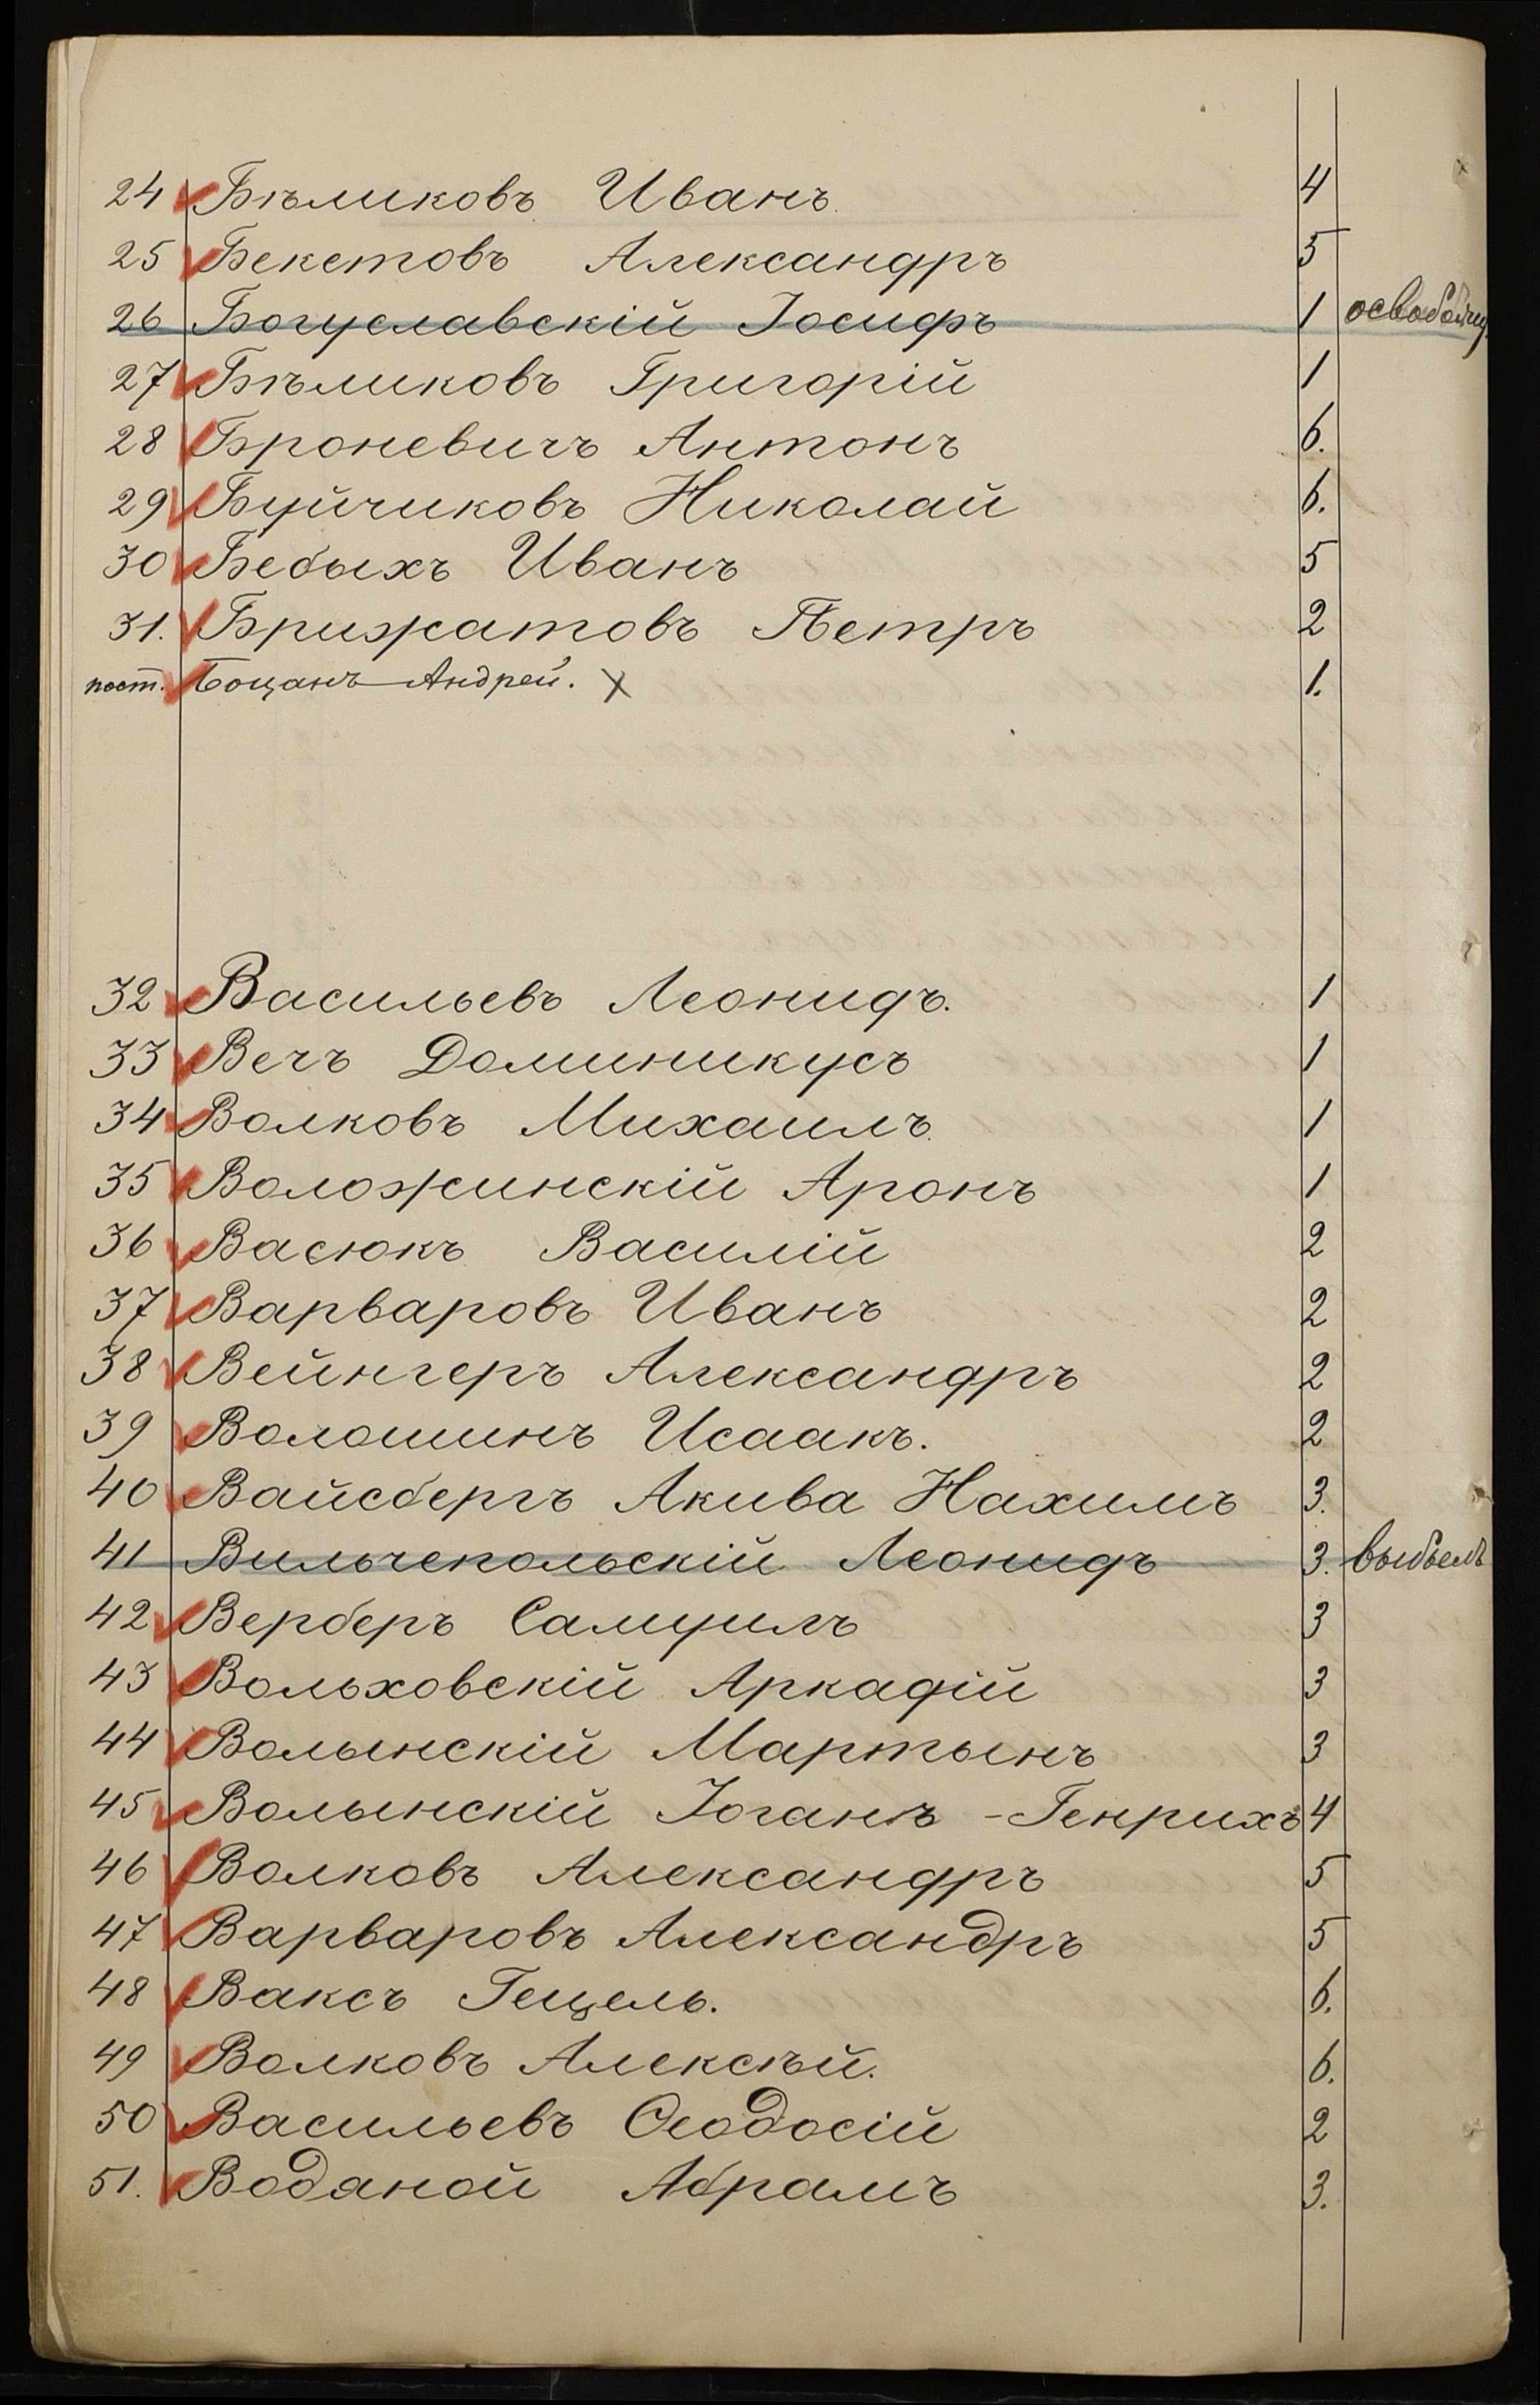 24 Бѣликовъ Иванъ. 4
25 Бекетовъ Александръ 5
26 Богуславскій Іосифъ 1
27 Бѣликовъ Григорій 1
28 Броневичъ Антонъ 6.
29 Буйчиковъ Николай 6.
30 Бебыхъ Иванъ 5
31. Брижатовъ Петръ 2
пост. Боцанъ Андрей. х 1.
32 Васильевъ Леонидъ. 1
33 Вечъ Доминикусъ 1
34 Волковъ Михаилъ. 1
35 Воложинскій Аронъ 1
36 Васюкъ Василій 2
37 Варваровъ Иванъ 2
38 Вейнгеръ Александръ 2
39 Волошинъ Исаакъ. 2
40 Вайсбергъ Акива Нахимъ 3.
41 Вильчепольскій Леонидъ 3. выбылъ
42 Верберъ Самуилъ 3
43 Вольховскій Аркадій 3
44 Волынскій Мартынъ 3
45 Волынскій Іоганъ - Генрихъ 4
46 Волковъ Александръ 5
47 Варваровъ Александръ 5
48 Ваксъ Гецель. 6.
49 Волковъ Алексѣй. 6.
50 Васильевъ Ѳеодосій 2
51. Водяной Абрамъ 3.